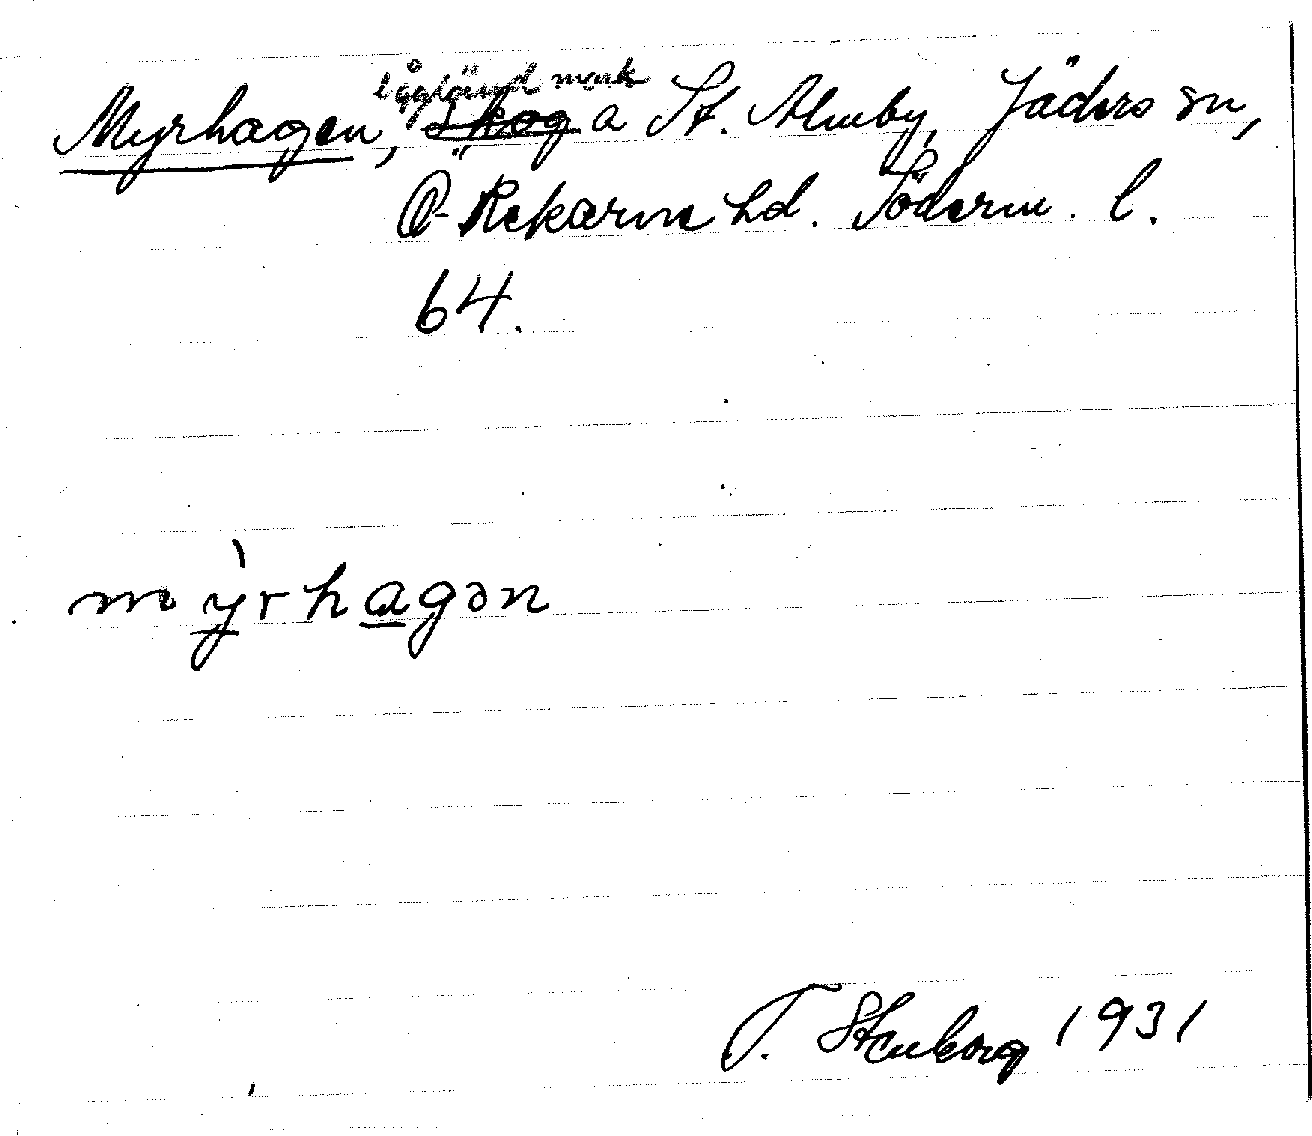 Myrhagen, lågländ mark a St. Almby, Jäders sn,
Ö-Rekarne hd. Söderm. l.
64.
mỳ̱rha̱gən
T. Stenborg 1931